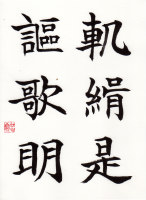 軌絹是
謳歌明